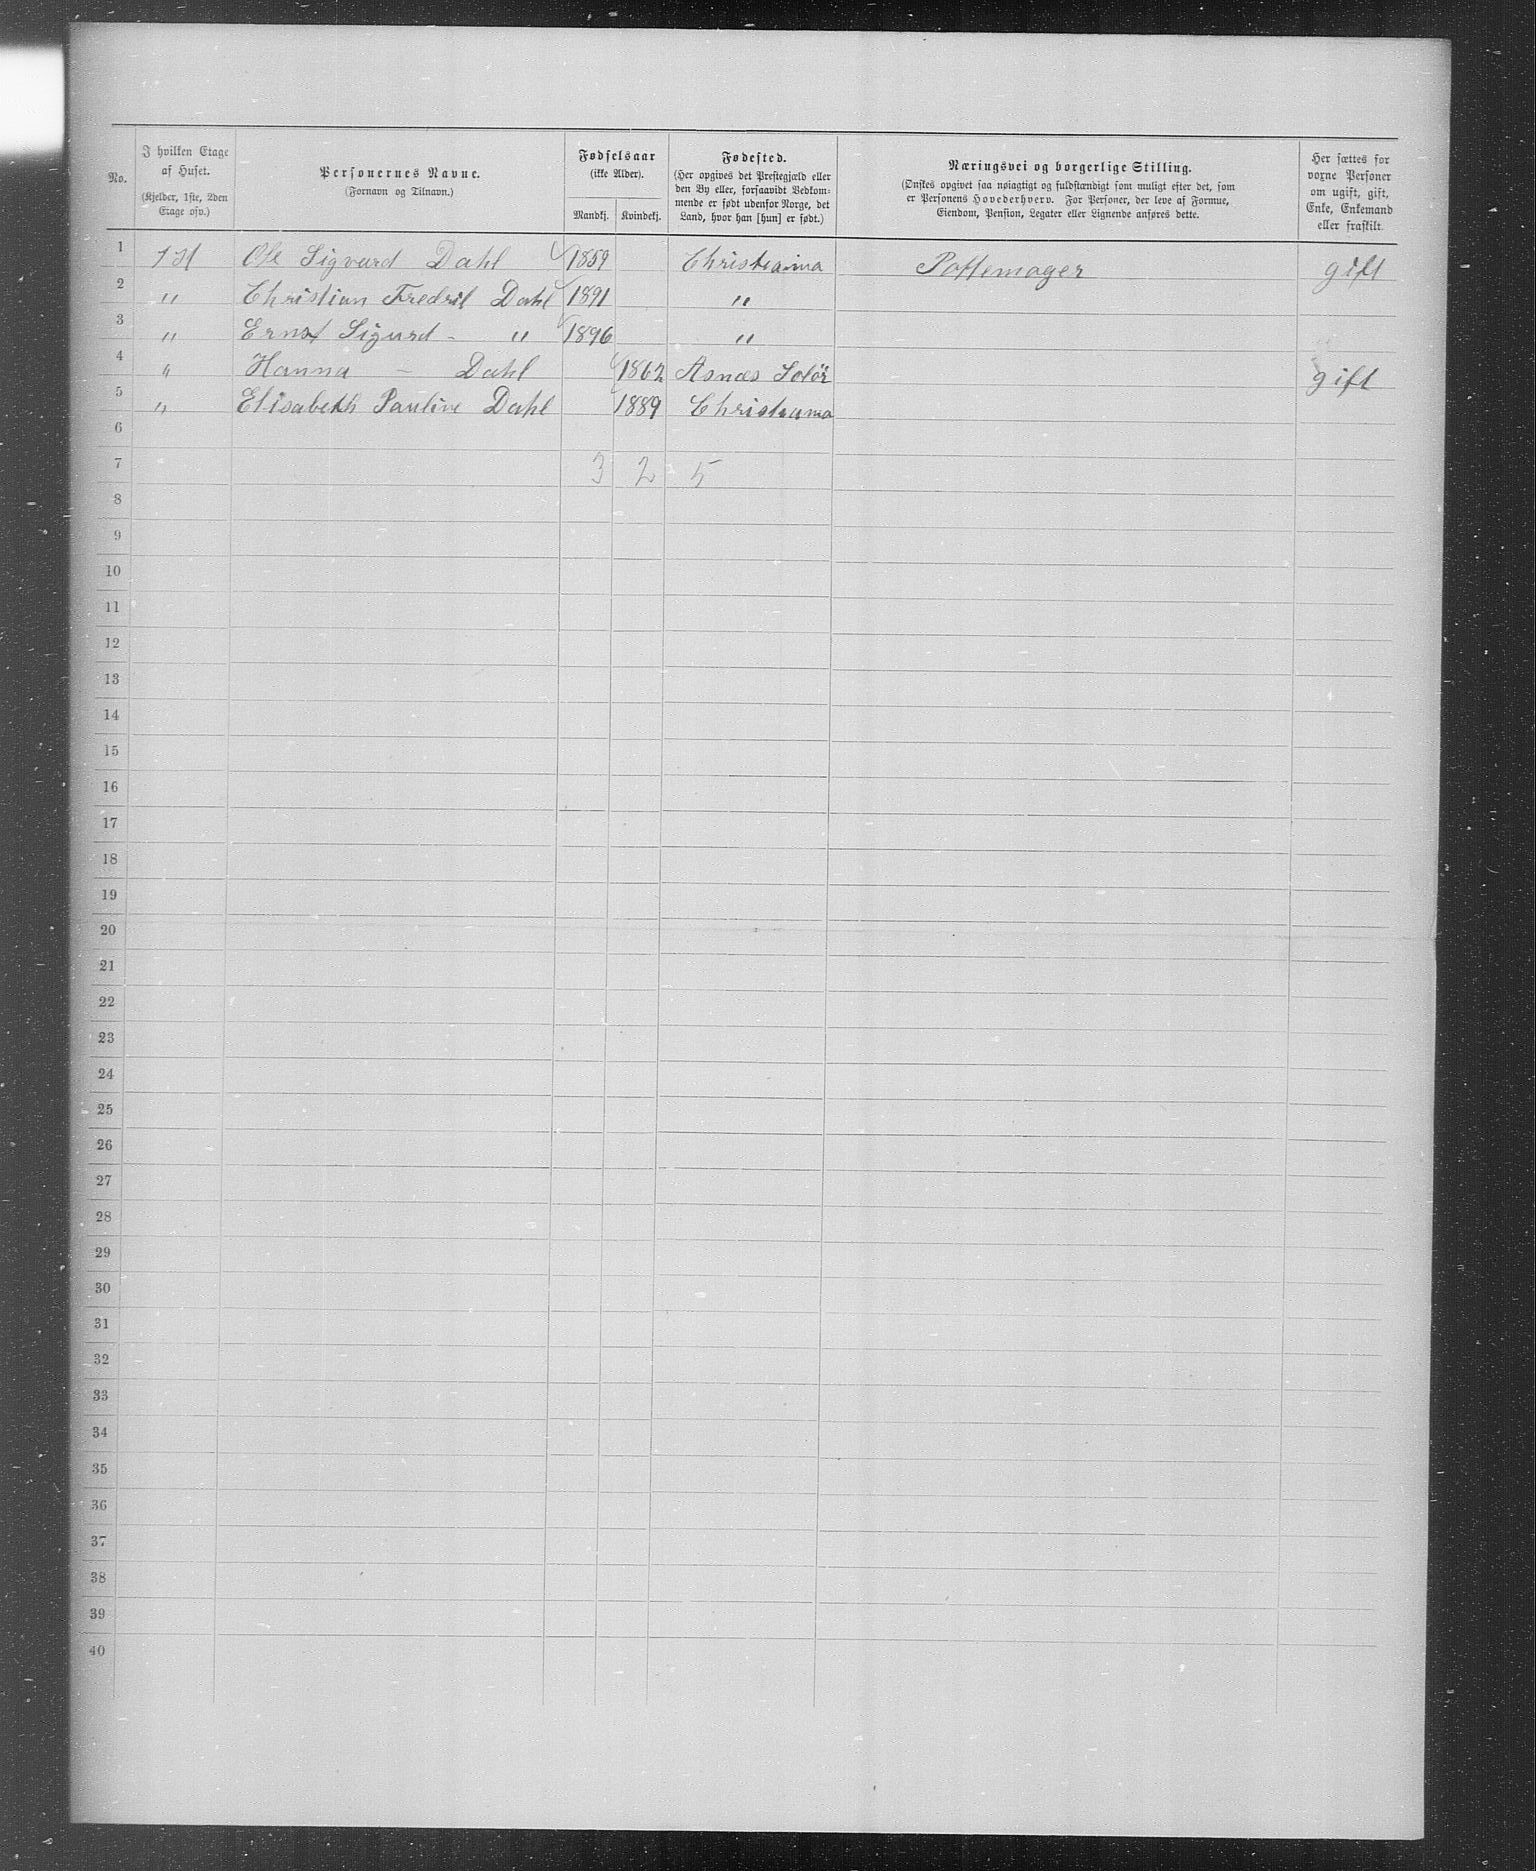 No. | I hvilken Etage af Huset. (Kjelder, 1ste, 2den Etage osv.) | Personernes Navne. (Fornavn og Tilnavn.) | Fødselsaar (ikke Alder). Mandkj. | Kvindekj. | Fødested. (Her opgives det Prestegjæld eller den By eller, forsaavidt Vedkommende er født udenfor Norge, det Land, hvor han [hun] er født.) | Næringsvei og borgerlige Stilling. (Ønskes opgivet saa nøiagtigt og fuldstændigt som muligt efter det, som er Personens Hovederhverv. For Personer, der leve af Formue, Eiendom, Pension, Legater eller Lignende anføres dette. | Her sættes for voxne Personer om ugift, gift, Enke, Enkemand eller fraskilt.
1 | 1st | Ole Sigvard Dahl | 1859 | | Christiania | Pottemager | gift
2 | " | Christian Fredrik Dahl | 1891 | | " | |
3 | " | Ernst Sigurd - " | 1896 | | " | |
4 | " | Hanna - Dahl | | 1862 | Asnæs Solör | | gift
5 | " | Elisabeth Pauline Dahl | | 1889 | Christiania | |
6
7 | | | 3 | 2 | 5
8
9
10
11
12
13
14
15
16
17
18
19
20
21
22
23
24
25
26
27
28
29
30
31
32
33
34
35
36
37
38
39
40